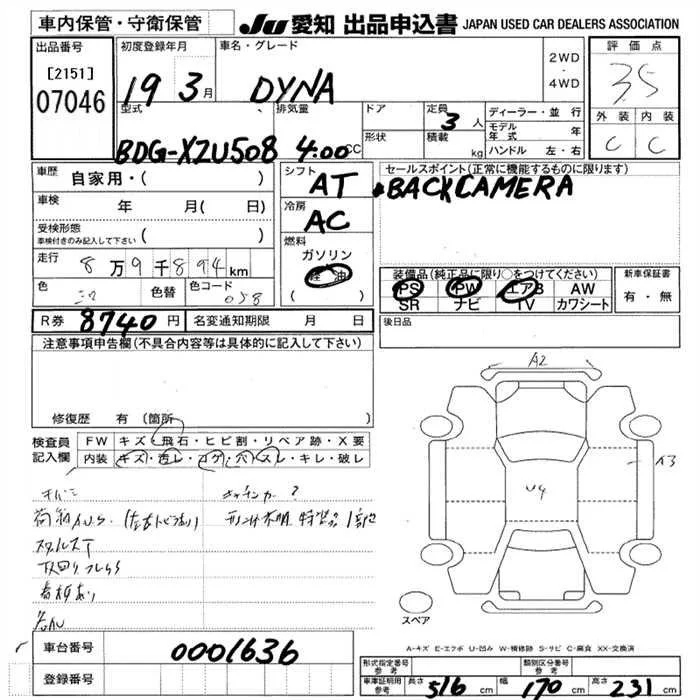 車内保管・守衛保管
JU 愛知 出品申込書 JAPAN USED CAR DEALERS ASSOCIATION
出品番号
[2151]
07046
初度登録年月
19 3月
車名・グレード
DYNA
2WD
・
4WD
評価点
35
外装 内装
C C
型式
BDG-XZU508
排気量
4.00 CC
ドア
形状
定員
3人
積載
kg
ディーラー・並行
モデル年式 年
ハンドル 左・右
車歴
自家用・( )
車検
年 月( 日)
受検形態
車検付きのみ記入して下さい ( )
走行
8万9千894km
色
色替
色コード
058
シフト
AT
冷房
AC
燃料
ガソリン
軽油
( )
セールスポイント(正常に機能するものに限ります)
BACK CAMERA
装備品(純正品に限り○をつけてください)
PS PW エアB AW
SR ナビ TV カワシート
新車保証書
有・無
R券 8740円 名変通知期限 月 日
後日品
注意事項申告欄(不具合内容等は具体的に記入して下さい)
修復歴 有(箇所 )
検査員記入欄
FW キズ・飛石・ヒビ割・リペア跡・X要
内装 キズ・汚レ・コゲ・穴・スレ・キレ・破レ
A2
A3
U4
下回りフレサビ
スペア
A-キズ E-エクボ U-凹み W-補修跡 S-サビ C-腐食 XX-交換済
車台番号
0001636
登録番号
形式指定番号
参考
類別区分番号
参考
車庫証明用
参考
長さ 516 cm
幅 170 cm
高さ 231 cm